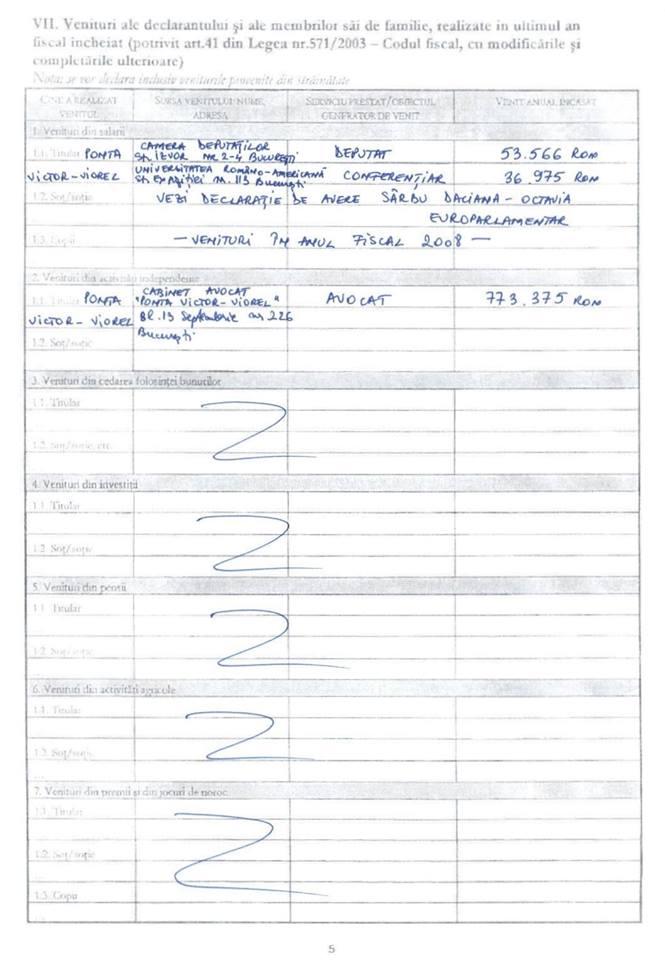 VII. Venituri ale declarantului și ale membrilor săi de familie, realizate in ultimul an
fiscal incheiat (potrivit art.41 din Legea nr.571/2003 – Codul fiscal, cu modificările și
completările ulterioare)
Nota: se vor declara inclusiv veniturile provenite din străinătate
CINE A REALIZAT VENITUL
SURSA VENITULUI: NUME, ADRESA
SERVICIUL PRESTAT/OBIECTUL GENERATOR DE VENIT
VENIT ANUAL INCASAT
1. Venituri din salarii
CAMERA DEPUTAȚILOR
1.1. Titular PONTA STR. IZVOR NR 2-4 BUCUREȘTI DEPUTAT 53.566 RON
UNIVERSITATEA ROMÂNO-AMERICANĂ
VICTOR-VIOREL București CONFERENȚIAR 36.975 RON
1.2. Soț/soție VEZI DECLARAȚIE DE AVERE SÂRBU DACIANA-OCTAVIA
EUROPARLAMENTAR
1.3. Copii — VENITURI ÎN ANUL FISCAL 2008 —
2. Venituri din activități independente
CABINET AVOCAT
1.1. Titular PONTA "PONTA VICTOR-VIOREL" AVOCAT 773.375 RON
VICTOR-VIOREL 13 Septembrie nr 226
București
1.2. Soț/soție
3. Venituri din cedarea folosinței bunurilor
1.1. Titular
1.2. Soț/soție, etc.
4. Venituri din investiții
1.1. Titular
1.2. Soț/soție
5. Venituri din pensii
1.1. Titular
1.2. Soț/soție
6. Venituri din activități agricole
1.1. Titular
1.2. Soț/soție
7. Venituri din premii și din jocuri de noroc
1.1. Titular
1.2. Soț/soție
1.3. Copii
5